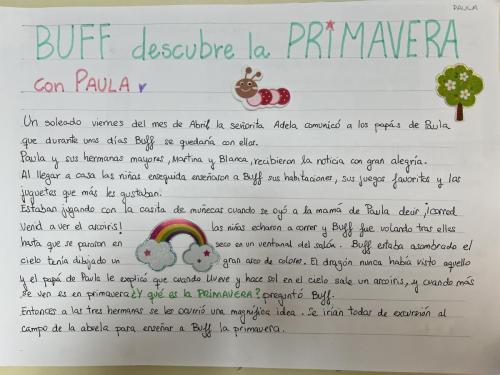 PAULA
BUFF descubre la PRIMAVERA
con PAULA
Un soleado viernes del mes de Abril la señorita Adela comunicó a los papás de Paula
que durante unos días Buff se quedaría con ellos.
Paula y sus hermanas mayores, Martina y Blanca, recibieron la noticia con gran alegría.
Al llegar a casa las niñas enseguida enseñaron a Buff sus habitaciones, sus juegos favoritos y los
juguetes que más les gustaban.
Estaban jugando con la casita de muñecas cuando se oyó a la mamá de Paula decir ¡corred
venid a ver el arcoiris! las niñas echaron a correr y Buff fue volando tras ellas
hasta que se pararon en seco en un ventanal del salón. Buff estaba asombrado el
cielo tenía dibujado un gran arco de colores. El dragón nunca había visto aquello
y el papá de Paula le explicó que cuando llueve y hace sol en el cielo sale un arcoiris, y cuando más
se ven es en primavera ¿Y qué es la PRIMAVERA? preguntó Buff.
Entonces a las tres hermanas se les ocurrió una magnífica idea. Se irían todas de excursión al
campo de la abuela para enseñar a Buff la primavera.